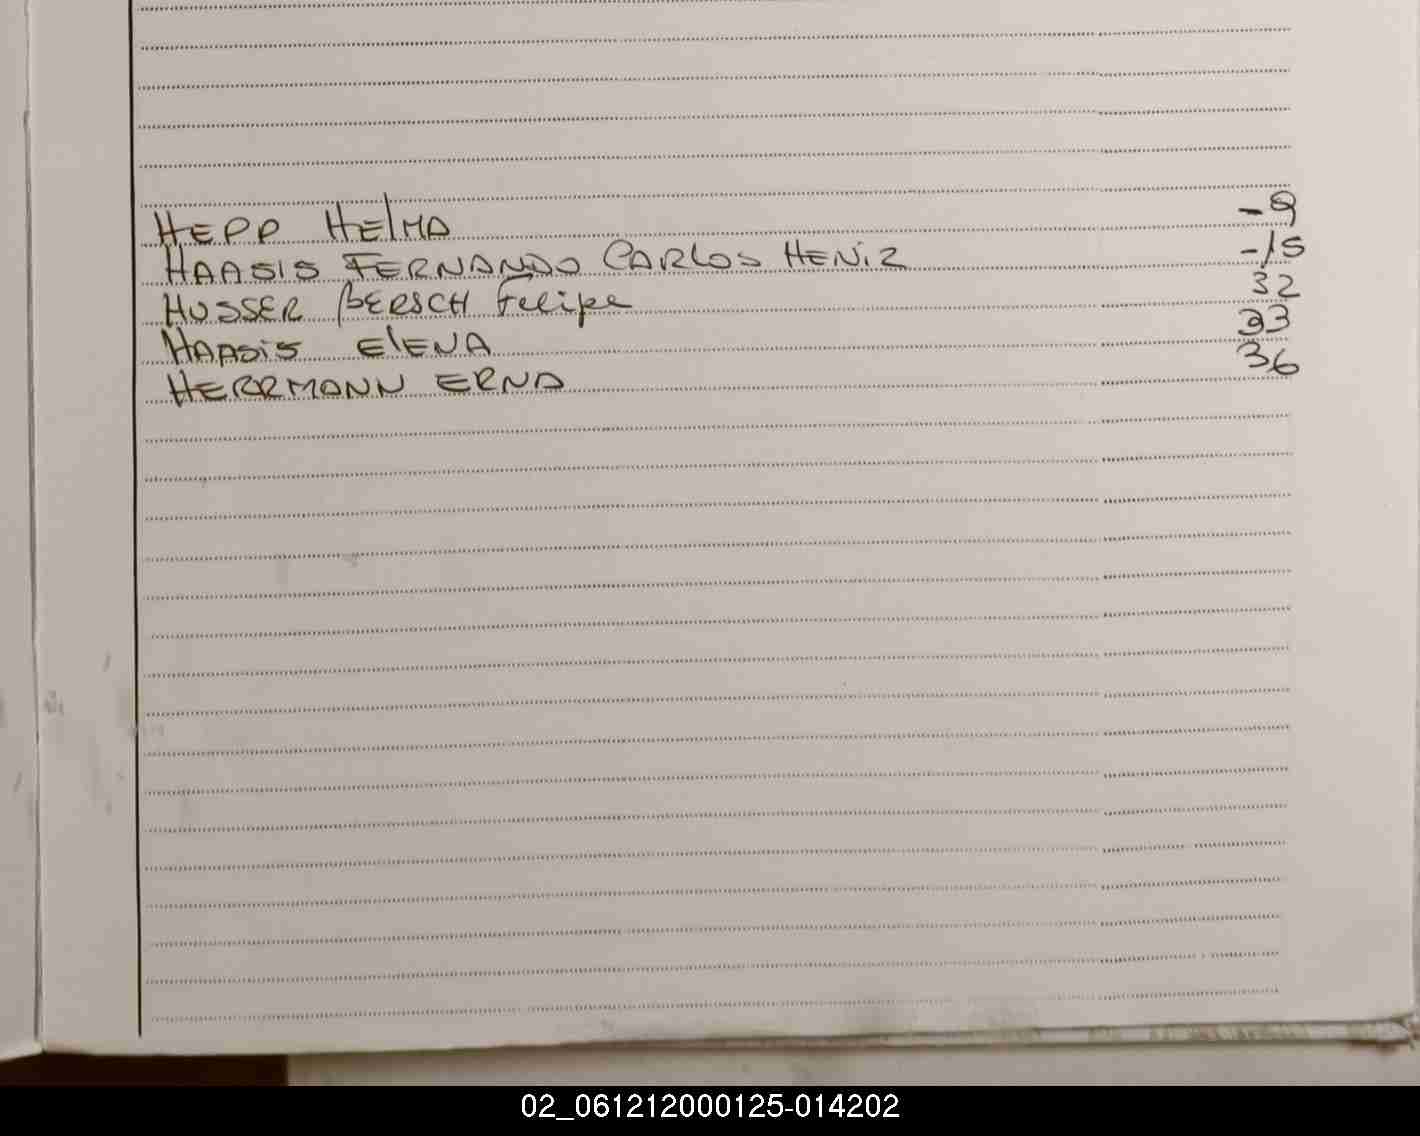 HEPP HElMA -9
HAASIS FERNANDO CARLOS HENiZ -15
HUSSER BERSCH Felipe 32
HAASiS ElENA 33
HERRMANN ERNA 36
02_061212000125-014202